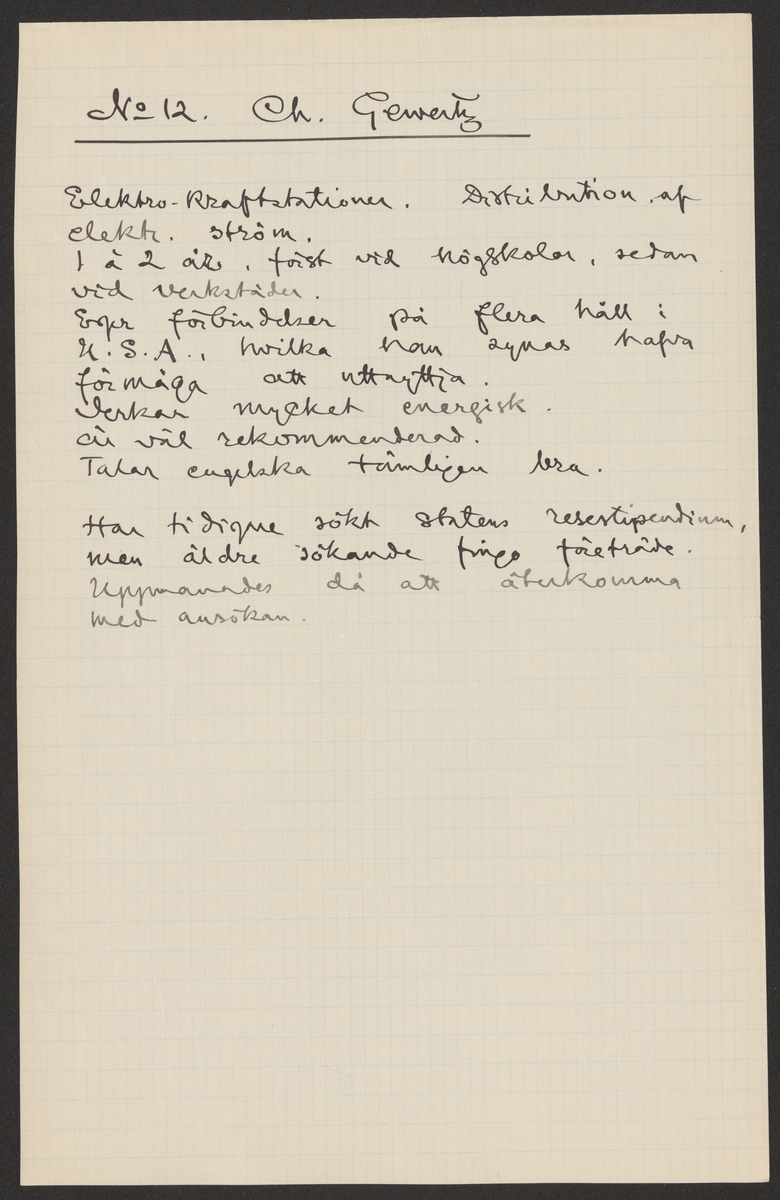 No 12. Ch. Gewertz
Elektro-Kraftstationer. Distribution af
elektr. ström.
1 à 2 år, först vid högskolor, sedan
vid verkstäder.
förbindelser på flera håll i
U.S.A., hvilka han synes hafva
förmåga att uttnyttja.
Verkar mycket energisk.
är väl rekommenderad.
Talar engelska tämligen bra.
Har tidigare sökt Statens resestipendium,
men äldre sökande fingo företräde.
Uppmanades då att återkomma
med ansökan.